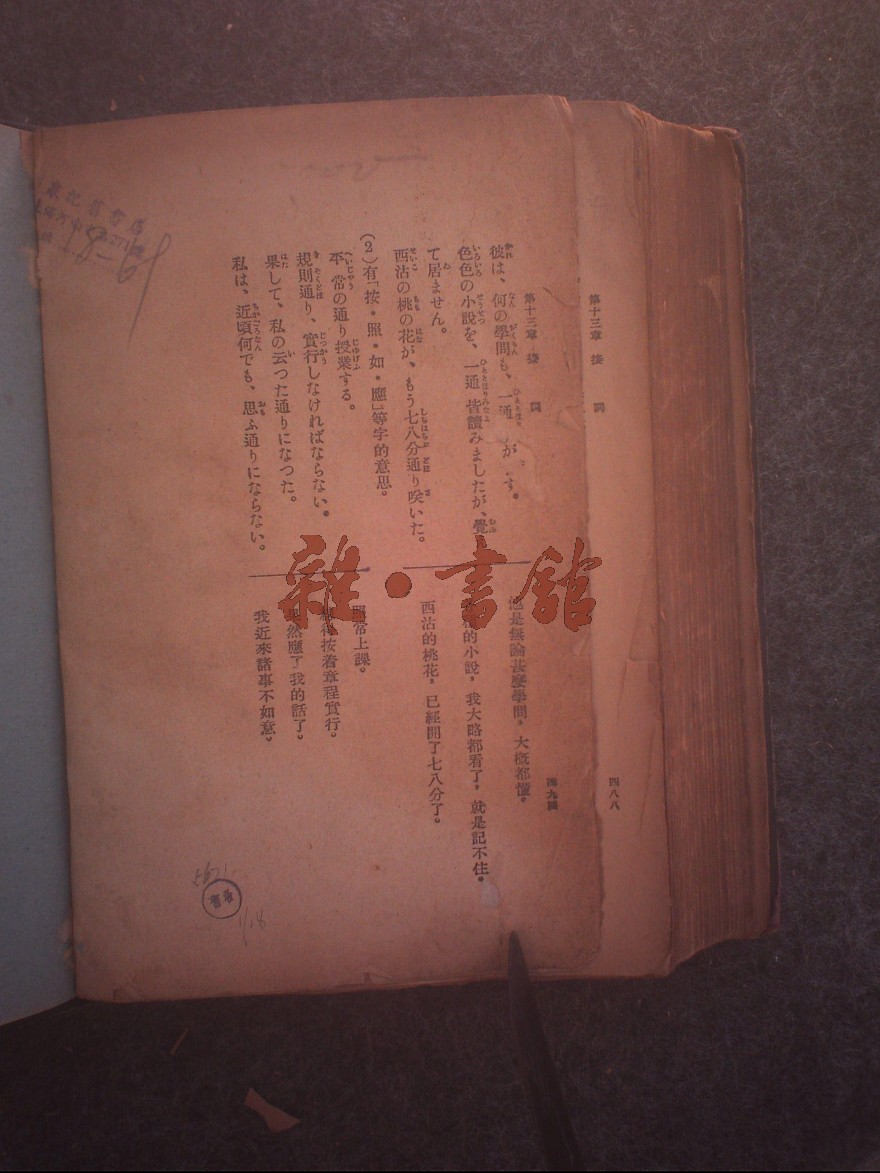 第十三章 接詞
四八八
第十三章 接詞
四九四
彼は、何の學問も、一通 が す。
色色の小說を、一通皆讀みましたが、覺え
て居ません。
西沽の桃の花が、もう七八分通り咲いた。
(2)有「按・照・如・應」等字的意思。
平常の通り授業する。
規則通り、實行しなければならない。
果して、私の云つた通りになつた。
私は、近頃何でも、思ふ通りにならない。
他是無論甚麼學問,大概都懂。
的小說,我大略都看了,就是記不住。
西沽的桃花,已經開了七八分了。
照常上課。
得按着章程實行。
果然應了我的話了。
我近來諸事不如意。
雜・書館
舊書店
18-61
書
1/18